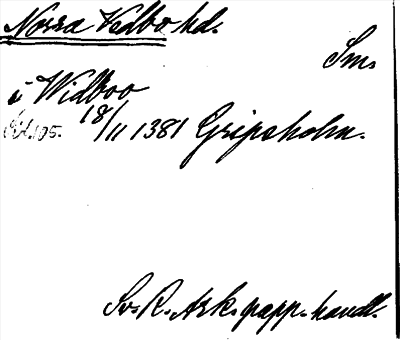 Norra Vedbo hd.
Sm.
i Widboo
18/11 1381 Gripsholm.
Sv. R. Ark. papp. handl.